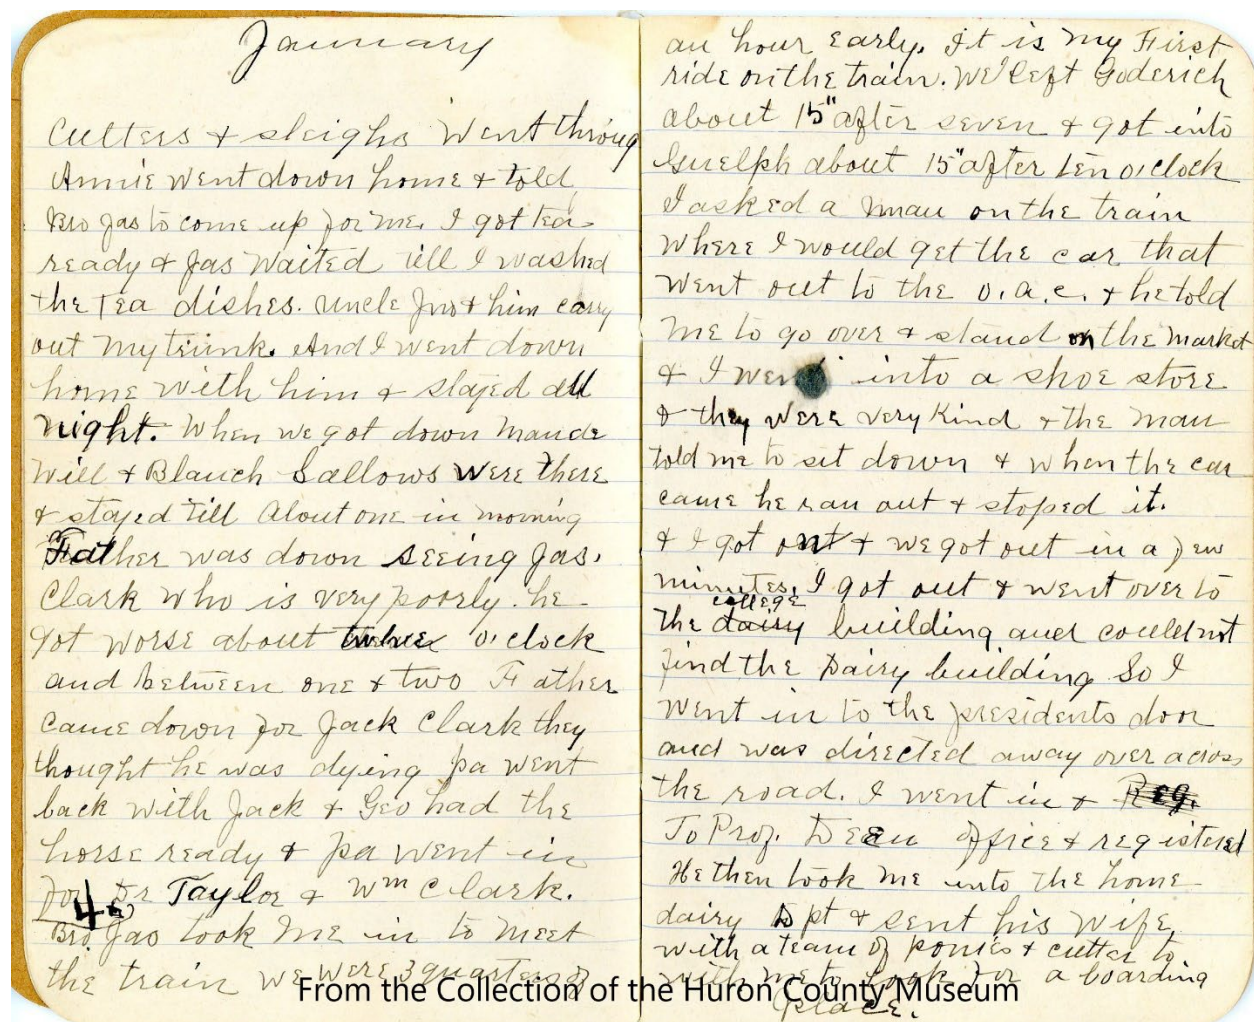 January
Cutters & sleighs Went throug
Annie went down home & told
Bro Jas to come up for me. I got tea
ready & Jas Waited till I washed
the Tea dishes. Uncle Jno & him carry
out my trunk. And I went down
home with him & stayed all
night. When we got down Maude
Will & Blanch Sallows were there
& stayed till About one in morning
Father was down seeing Jas.
Clark who is very poorly. he
got worse about twelve o'clock
and between one & two Father
came down for Jack Clark they
thought he was dying pa went
back with Jack & Geo had the
horse ready & pa went in
for Dr Taylor & Wm Clark.
4
Bro. Jas took me in to meet
the train we were 3 quarters of
an hour early. It is my First
ride on the train. We left Goderich
about 15" after seven & got into
Guelph about 15" after ten o'clock
I asked a man on the train
where I would get the car that
went out to the O.A.C. & he told
me to go over & stand on the market
& I went into a shoe store
& they were very kind & the man
told me to sit down & when the car
came he ran out & stoped it.
& I got on & we got out in a few
minutes. I got out & went over to
the dairy college building and could not
find the Dairy building So I
went in to the presidents door
and was directed away over across
the road. I went in & Reg.
To Prof. Dean office & registered
He then took me into the home
dairy Dpt & sent his wife
with a team of ponies & cutter to
with me to look for a boarding
place.
From the Collection of the Huron County Museum